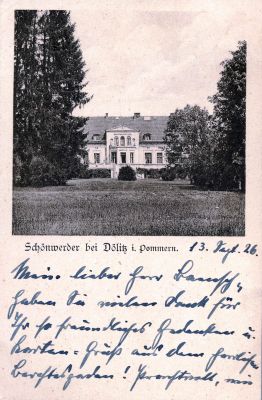 Schönwerder bei Dölitz i. Pommern. 13. Sept. 26.
Mein lieber Herr
haben Sie vielen Dank für
Ihr so freundliches Gedenken u.
Karten-Gruß aus dem herrlichen
Berchtesgaden! Prachtvoll, wie